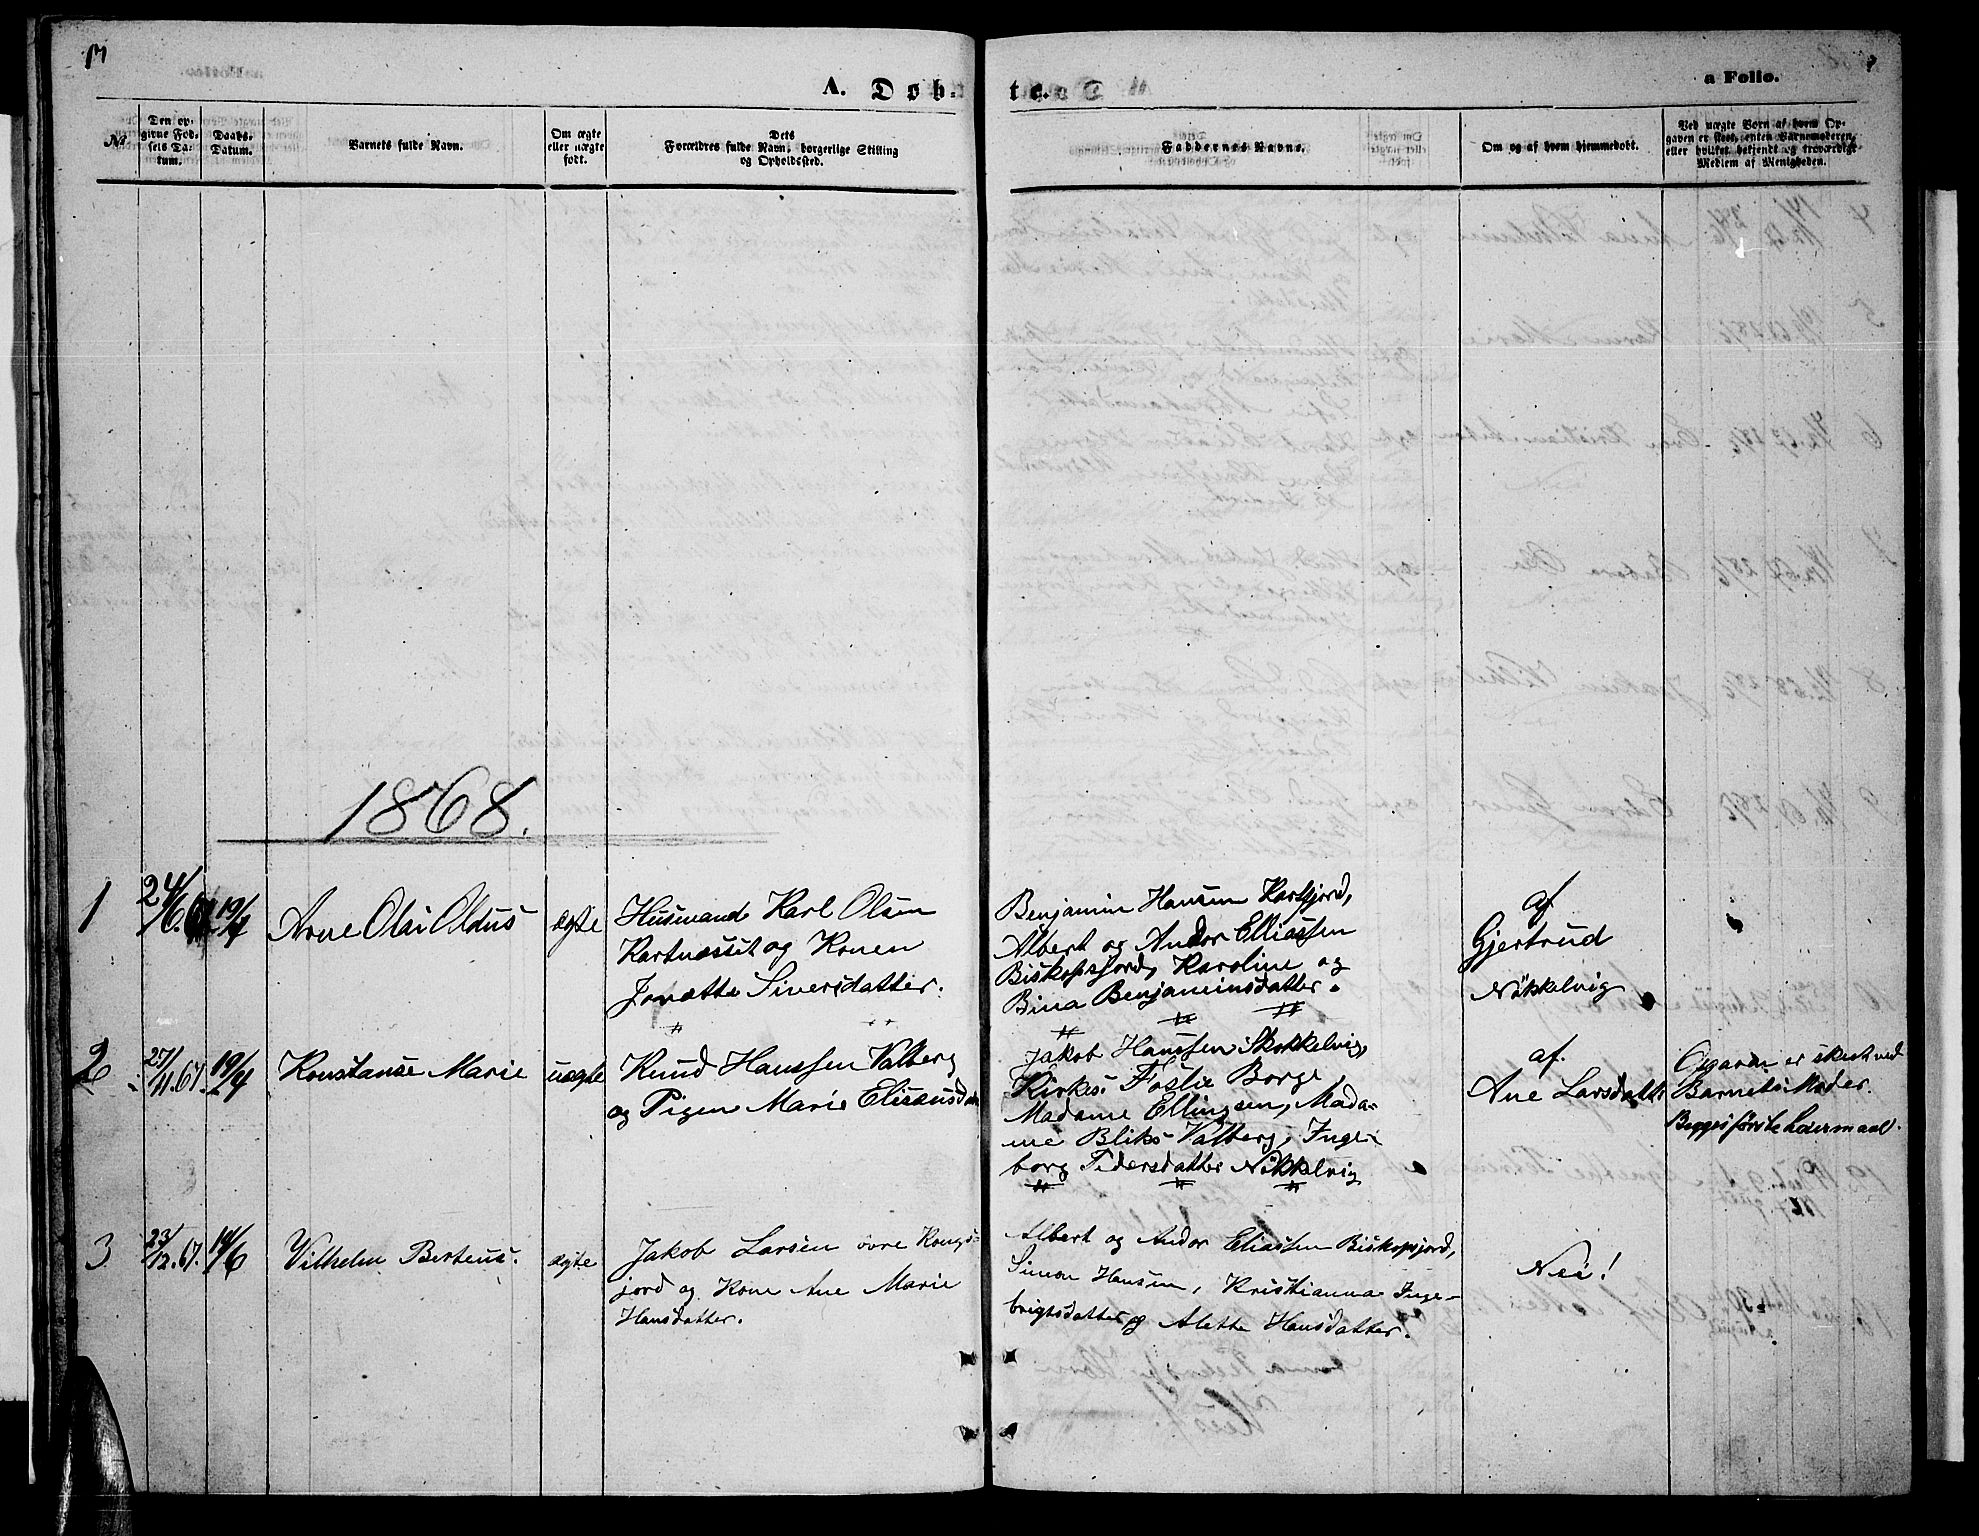 A. Døb- te.
a Folio.
№
Den op-
givne Fød-
sels Da-
tum.
Daabs-
Datum.
Barnets fulde Navn.
Om ægte
eller uægte
født.
Dets
Forældres fulde Navn, borgerlige Stilling
og Opholdssted.
Faddernes Navne.
Om og af hvem hjemmedøbt.
Ved uægte Børn af hvem Op-
gaven er skeet, enten Barnemoderen,
eller hvilket bekjendt og troværdigt
Medlem af Menigheden.
1868.
1
24/6.67
19/4
Arne Olai Aldus
ægte
Husmand Karl Olsen
Kartnæsset og Konen
Jonætte Siversdatter.
Benjamin Hansen Karlfjord,
Albert og Andor Elliassen
Biskopsfjord, Karoline og
Bina Benjaminsdatter.
af
Gjertrud
Nøkkelvig
2
27/11.67.
19/4
Konstanse Marie
uægte
Knud Hanssen Valberg
og Pigen Marie Eliseusdatter
Jakob Hanssen Skokkelvig,
Kirkes. Foslie Borge,
Madame Ellingsen, Mada-
me Bliks Valberg, Inge-
borg Pedersdatter Nøkkelvig
af.
Ane Larsdatter
Opgaven er skeet ved
Barnets Moder.
Begges første Leiermaal.
3
23/12.67.
14/6
Vilhelm Berteus.
ægte
Jakob Larsen øvre Kongs-
jord og Kone Ane Marie
Hansdatter.
Albert og Andor Eliassen Biskopsjord,
Simon Hansen, Kristianna Inge-
brigtsdatter og Alette Hansdatter.
Nei!